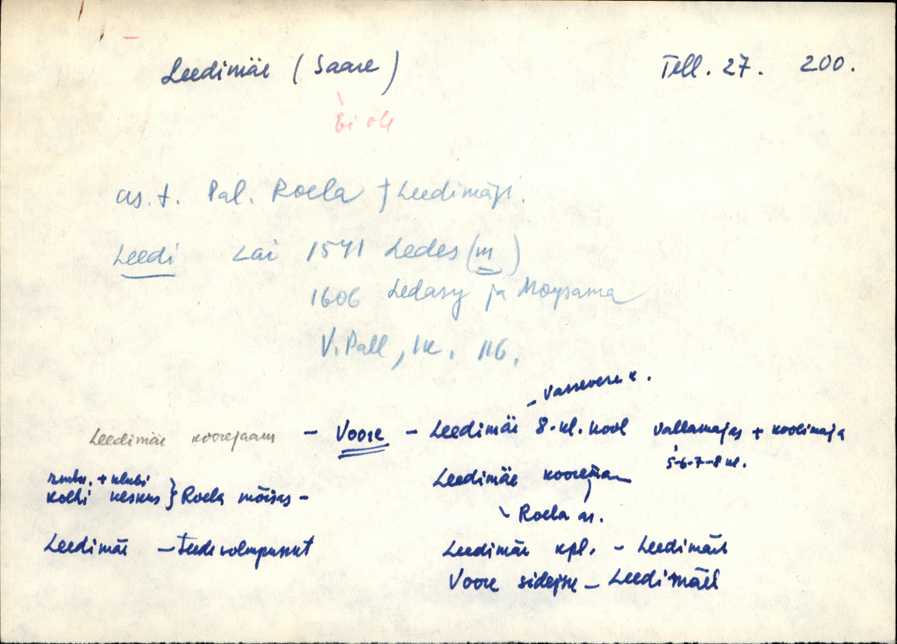 Leedimäe (Saare) Tell. 27. 200.
Ei ole
as. t. Pal. Roela Leedimägi.
Leedi Lai 1541 Ledes (m)
1606 Ledasy ja Moysama
V. Pall, 116.
Vassevere k.
Leedimäe koorejaam - Voore - Leedimäe 8-kl. kool vallamajas + koolimaja
5-6-7-8 kl.
+ klubi Leedimäe koorejaam
kolhi keskus } Roela mõisas -
Roela as.
Leedimäe - teede Leedimäe kpl. - Leedimäel
Voore sidejsk - Leedimäel